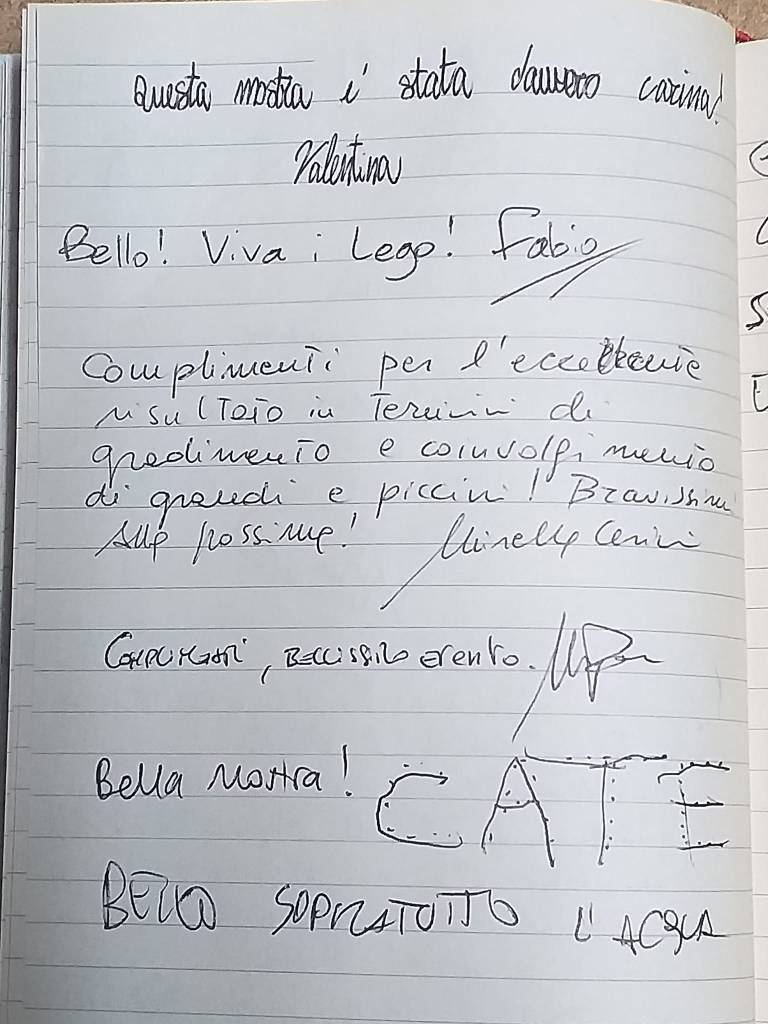 Questa mostra é stata davvero carina!
Valentina
Bello! Viva i Lego! Fabio
Complimenti per l'eccellente
risultato in Termini di
gradimento e coinvolgimento
di grandi e piccini! Bravissimi
Alla prossima! Mirella
COMPLIMENTI, BELLISSIMO EVENTO.
Bella Mostra! CATE
BELLO SOPRATUTTO L'ACQUA